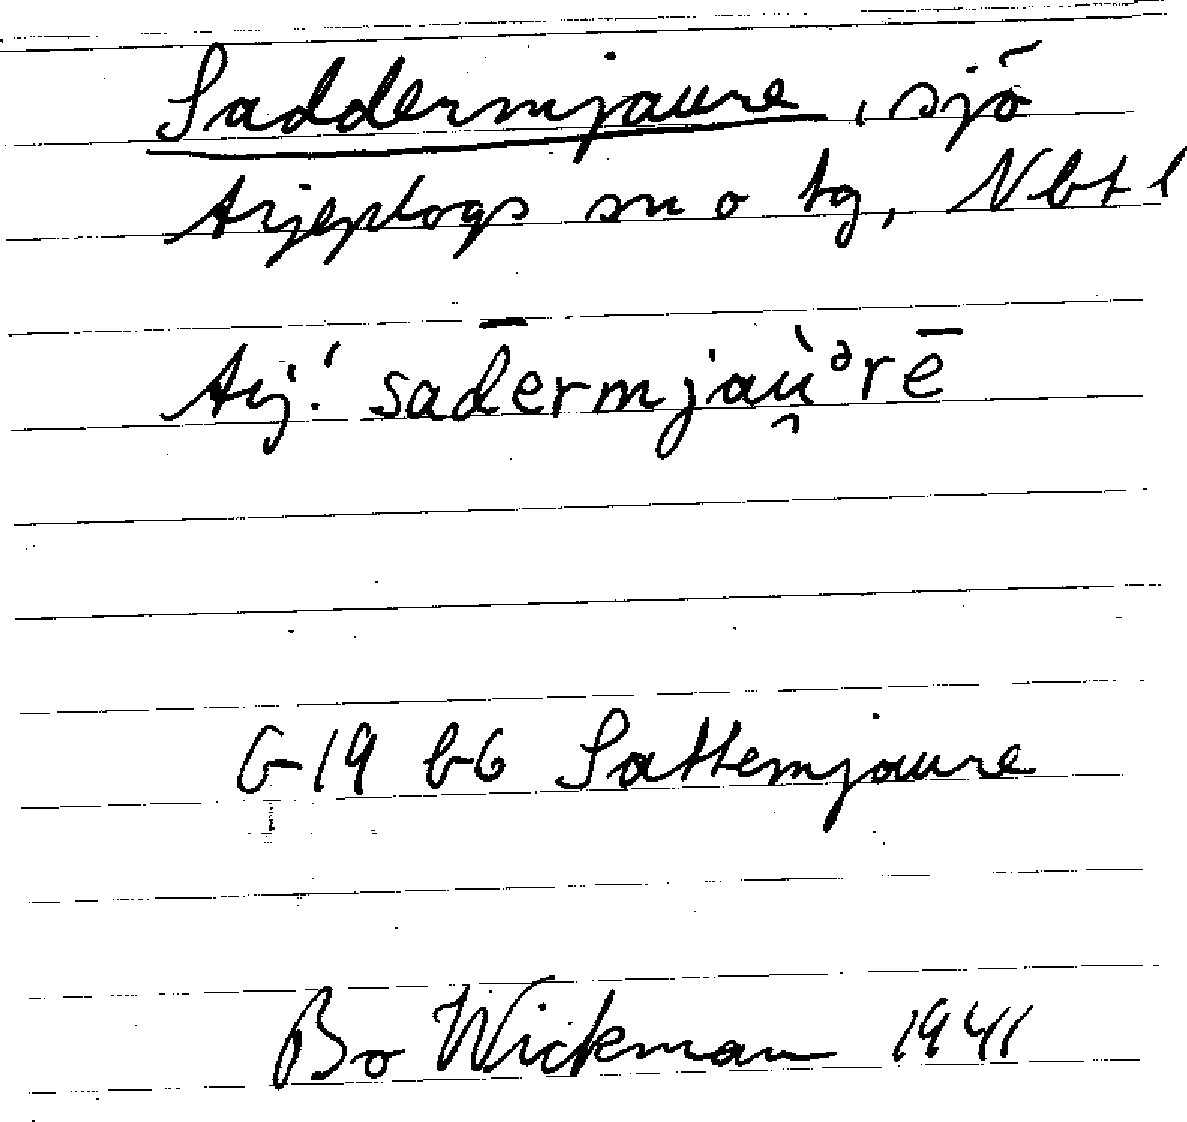 Saddermjaure, sjö
Arjeplogs sn o tg, Nbt l
Arj.! sad̄ermjaù̯ᵊrē
G-19 b6 Sattemjaure
Bo Wickman 1941